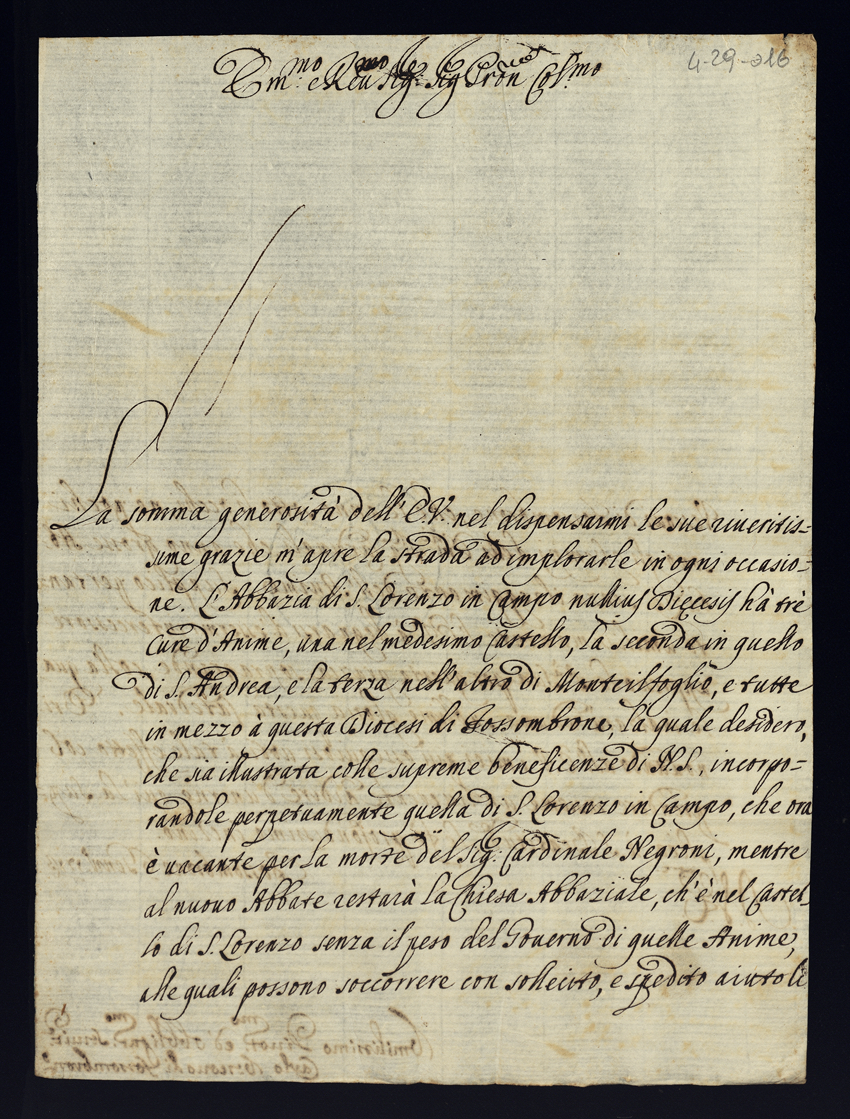 4-29-016
Em.mo e Reu.mo Sig.r Sig.r Pron Col.mo
La somma generosità dell'E.V. nel dispensarmi le sue riueritis=
sime grazie m'apre la strada ad implorarle in ogni occasio=
ne. L'Abbazia di S. Lorenzo in Campo nullius Dięcesis hà trè
Cure d'Anime, una nel medesimo Castello, la seconda in quello
di S. Andrea, e la terza nell'altro di Montevilfoglio, e tutte
in mezzo à questa Diocesi di Fossombrone, la quale desidero,
che sia illustrata colle supreme beneficenze di N.S., incorpo=
randole perpetuamente quella di S. Lorenzo in Campo, che ora
è uacante per la morte del Sig.r Cardinale Negroni, mentre
al nuouo Abbate restarà la Chiesa Abbaziale, ch'è nel Castel-
lo di S. Lorenzo senza il peso del Gouerno di quelle Anime,
alle quali possono soccorrere con sollecito, e spedito aiuto li